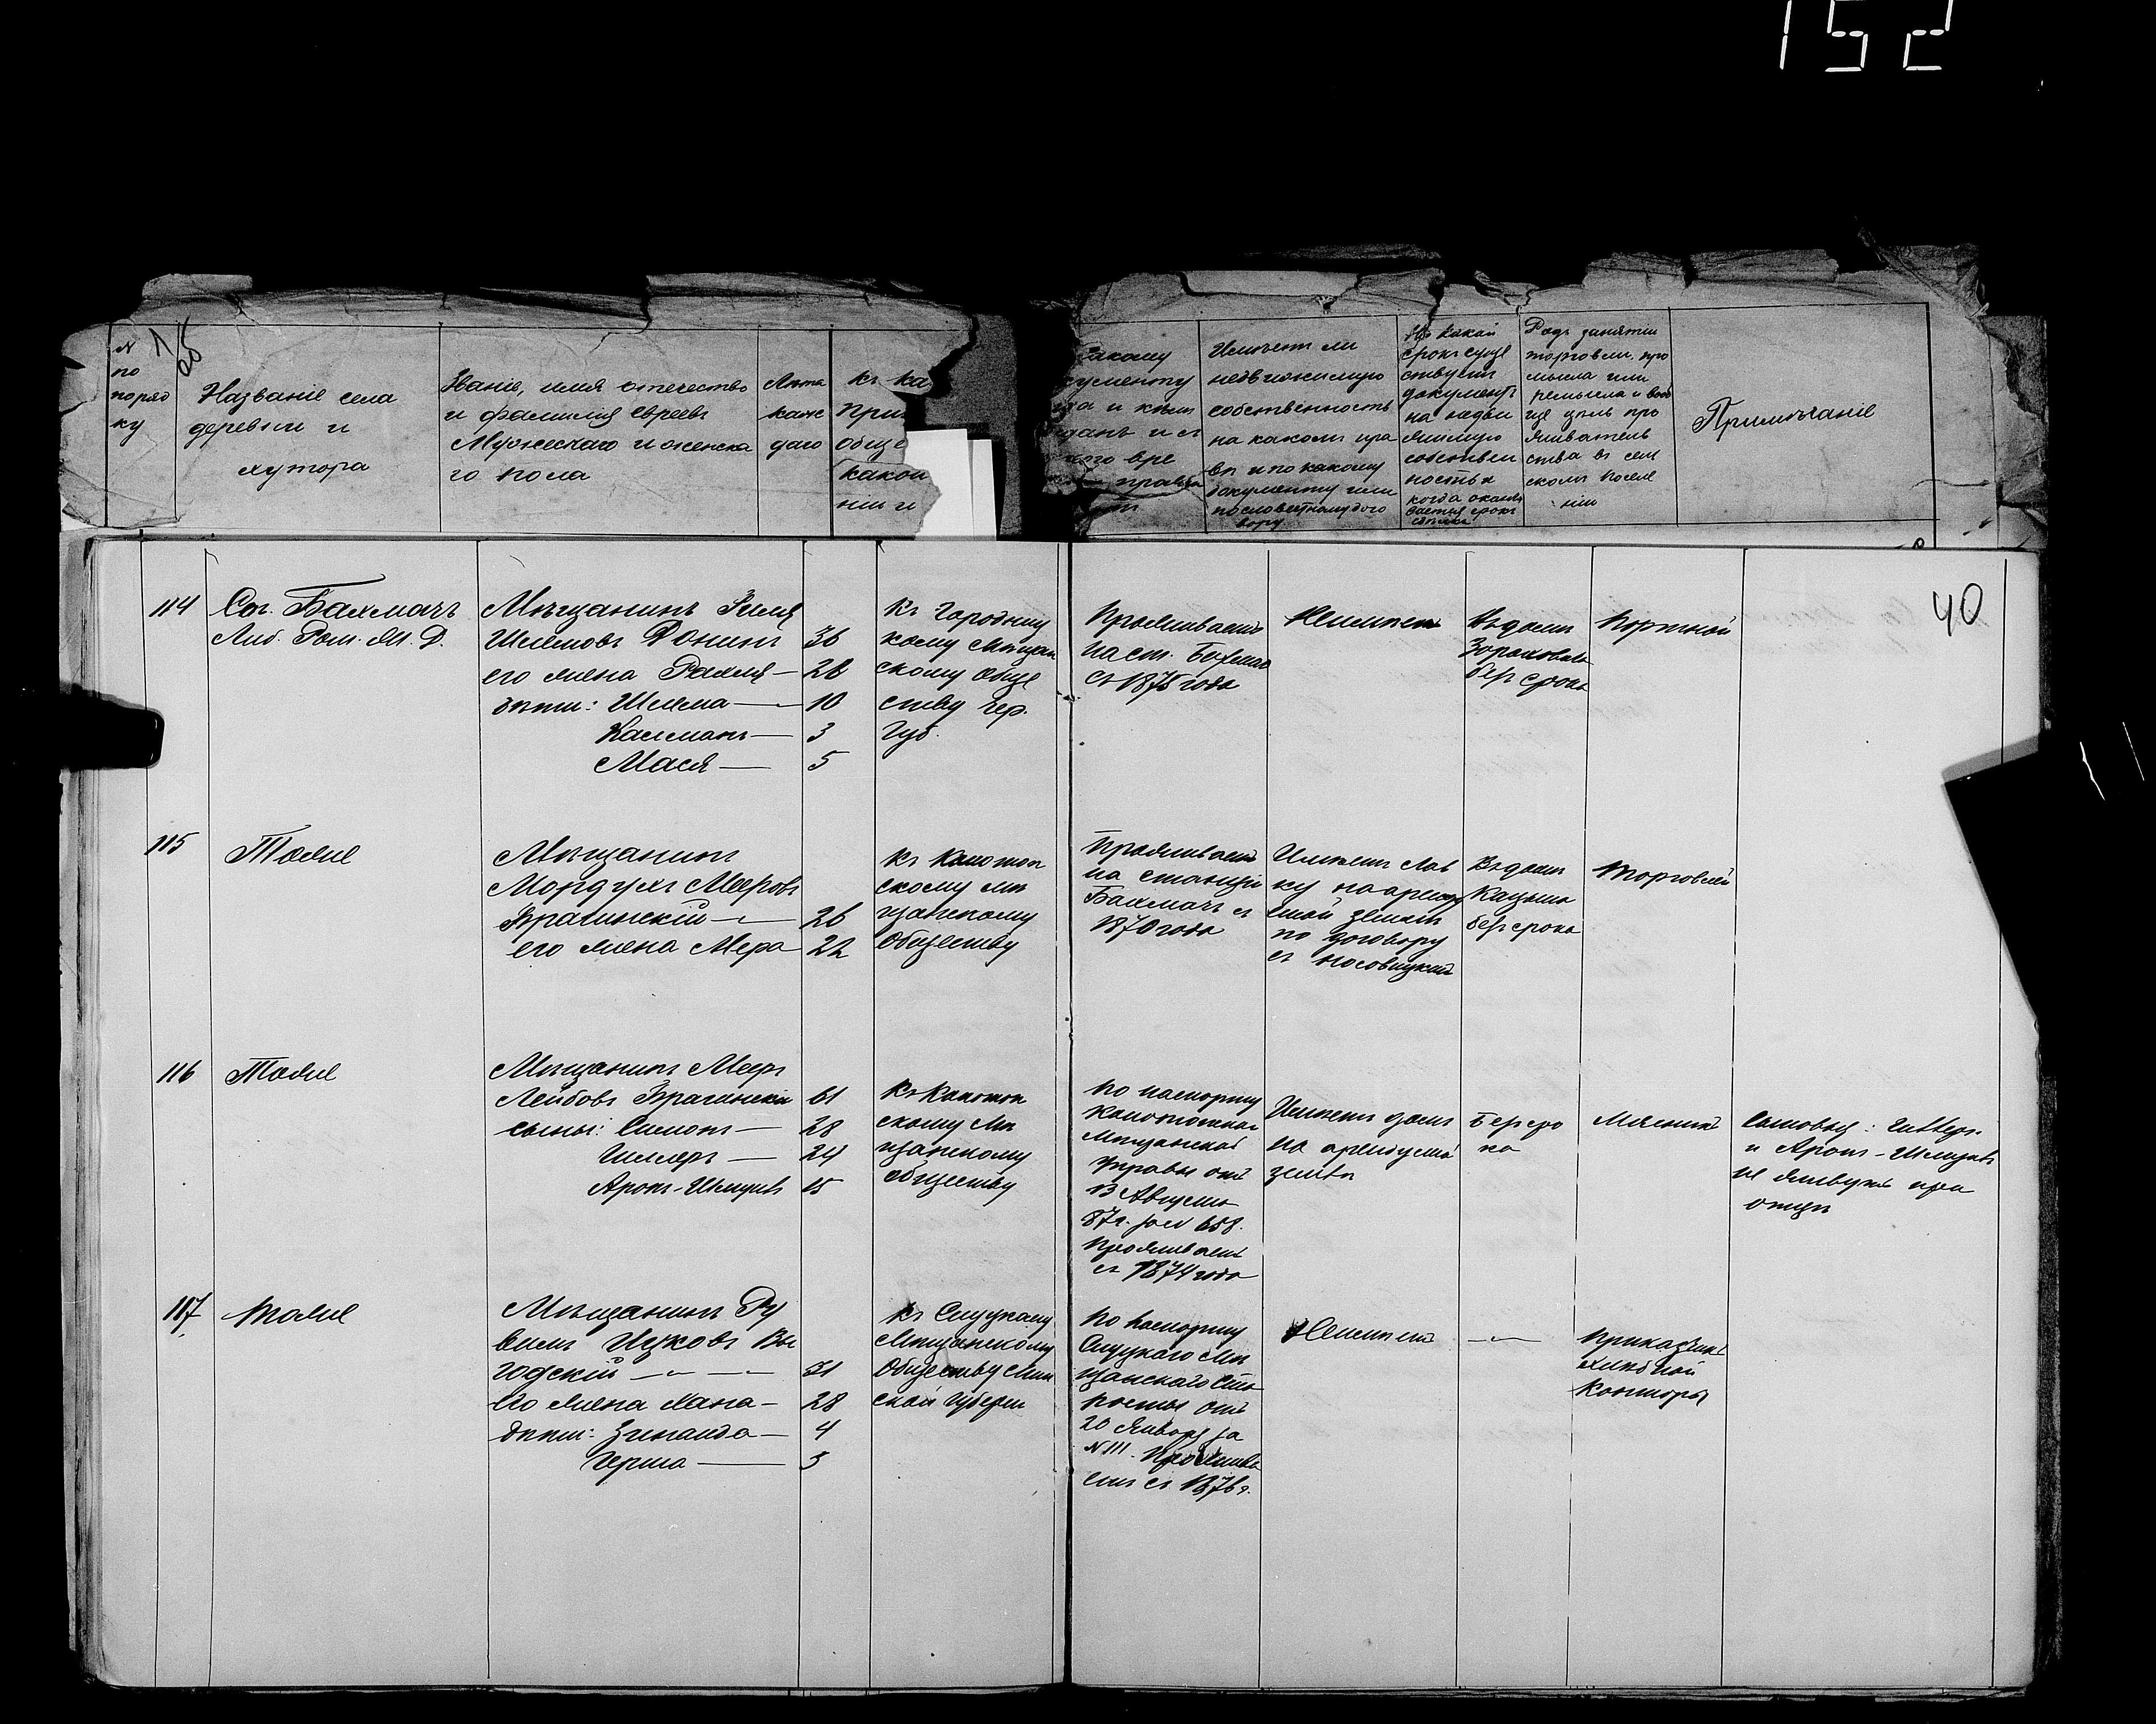 152
N
по
поряд
ку
Названіе села
деревни и
хутора
Званіе, имя отечество
и фамилия Евреевъ
Мужескаго и женска
го пола
Лѣта
каж
даго
къ ка
При
обще
какой
ніи и
какому
кументу
данъ и съ
вре
Имѣетъ ли
недвижимую
собственность
на какомъ пра
вѣ и по какому
документу или
пословестному дого
вору
На какой
срокъ суще
ствуетъ
документъ
на недви
жимую
собствен
ность и
когда оканч
вается срокъ
Родъ занятія
торговли, про
мысла или
ремысла и вооб
ще цѣль про
живатель
ства въ сель
скомъ поселе
ніи
Примѣчаніе
40
114
Ст. Бахмачъ
Либ. Ром. Ж. Д.
Мѣщанинъ
Шлемовъ Ронинъ 36
его жена Рахля — 28
дѣти: Шлема — 10
Калманъ — 3
Мася — 5
къ Городниц
кому Мѣщан
скому обще
ству Чер.
Губ.
Проживаетъ
на ст. Бахмачъ
съ 1875 года
Неимѣетъ
безъ срока
Портной
115
Тоже
Мѣщанинъ
Мордухъ Мееровъ
Брагинскій — 26
его жена Мера 22
къ Конотоп
скому мѣ
щанскому
Обществу
Проживаетъ
на станціи
Бахмачъ съ
1870 года
Имѣетъ лав
ку на арендо
емой землѣ
по договору
съ Носовицкой
безсрока
Торговлей
116
Тоже
Мѣщанинъ Меер
Лейбовъ Брагинскій 61
сыны: Симонъ — 28
Гиллеръ — 24
Аронъ-Шмуилъ 15
Къ Конотоп
скому Мѣ
щанскому
обществу
по паспорту
Конотопской
Мѣщанской
Управы отъ
13 Августа
87г. за N 658.
Проживаетъ
съ 1874 года
Имѣетъ домъ
на арендуемой
землѣ
Безсро
ка
Мясникъ
Сыновья: Гиллеръ
и Аронъ-Шмуилъ
не живутъ при
отцѣ
117
тоже
Мѣщанинъ Ру
вимъ Ицковъ Вы
годскій — 31
Его жена Хана — 28
дѣти: Зинаида — 4
Герша — 3
къ Слуцкому
Мѣщанскому
Обществу Мин
ской Губерніи
по паспорту
Слуцкаго Мѣ
щанскаго Ста
росты отъ
20 Января за
N 111. Прожива
етъ съ 1876 г.
Неимѣетъ
— —
приказчикъ
хлѣбной
конторы